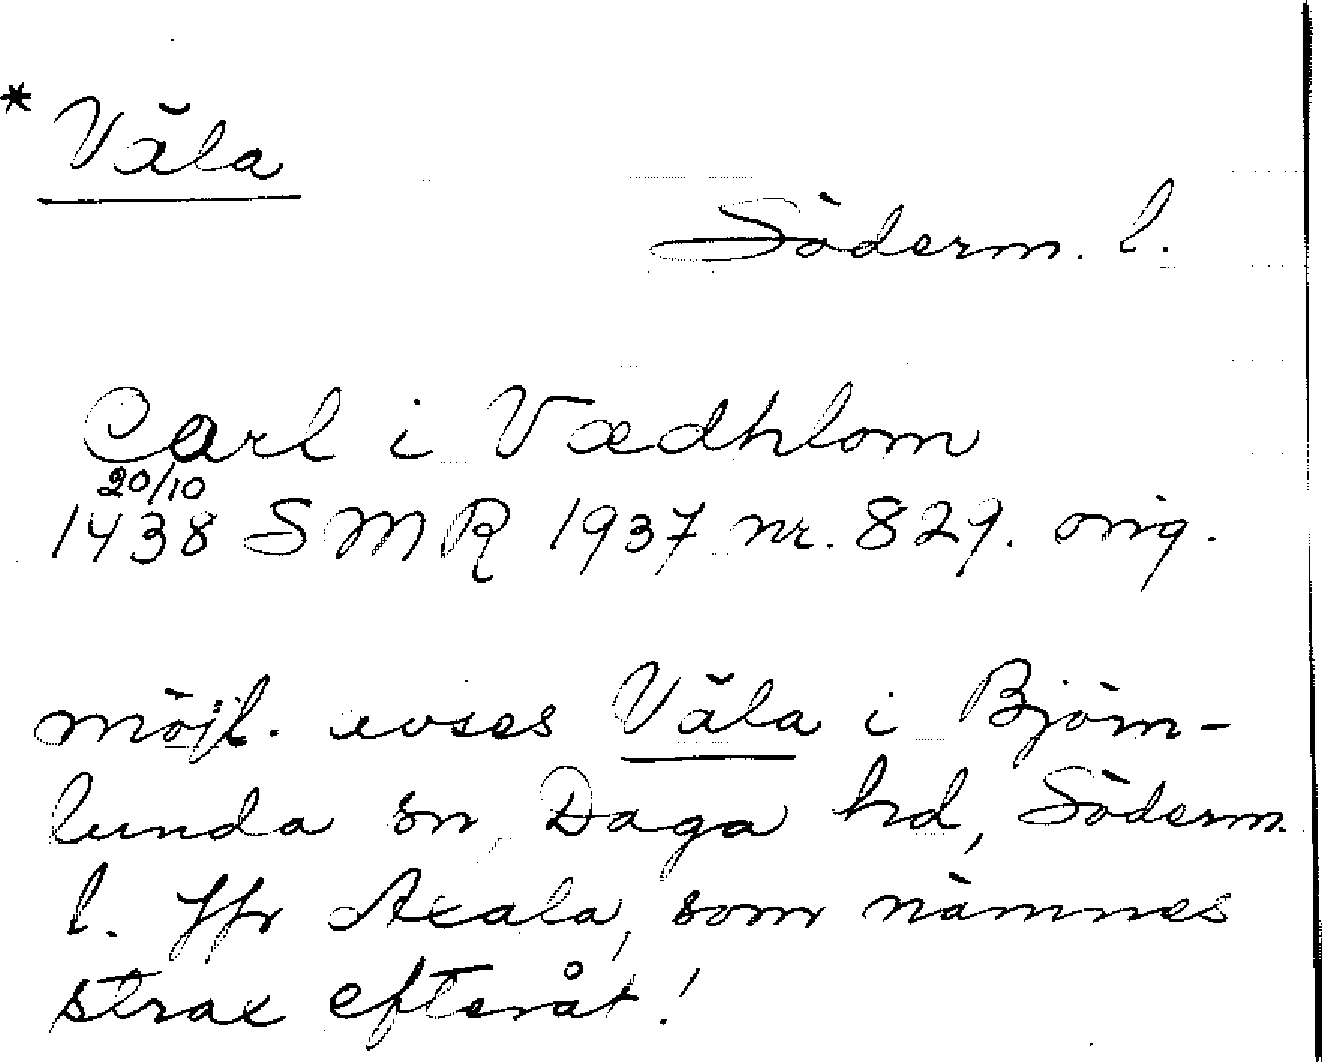 * Väla
Söderm. l.
Carl i Vædhlom
20/10
1438 SMR 1937 nr. 829. orig.
möjl. avses Väla i Björn-
lunda sn, Daga hd, Söderm.
l. Jfr Axala, som nämnes
strax efteråt!